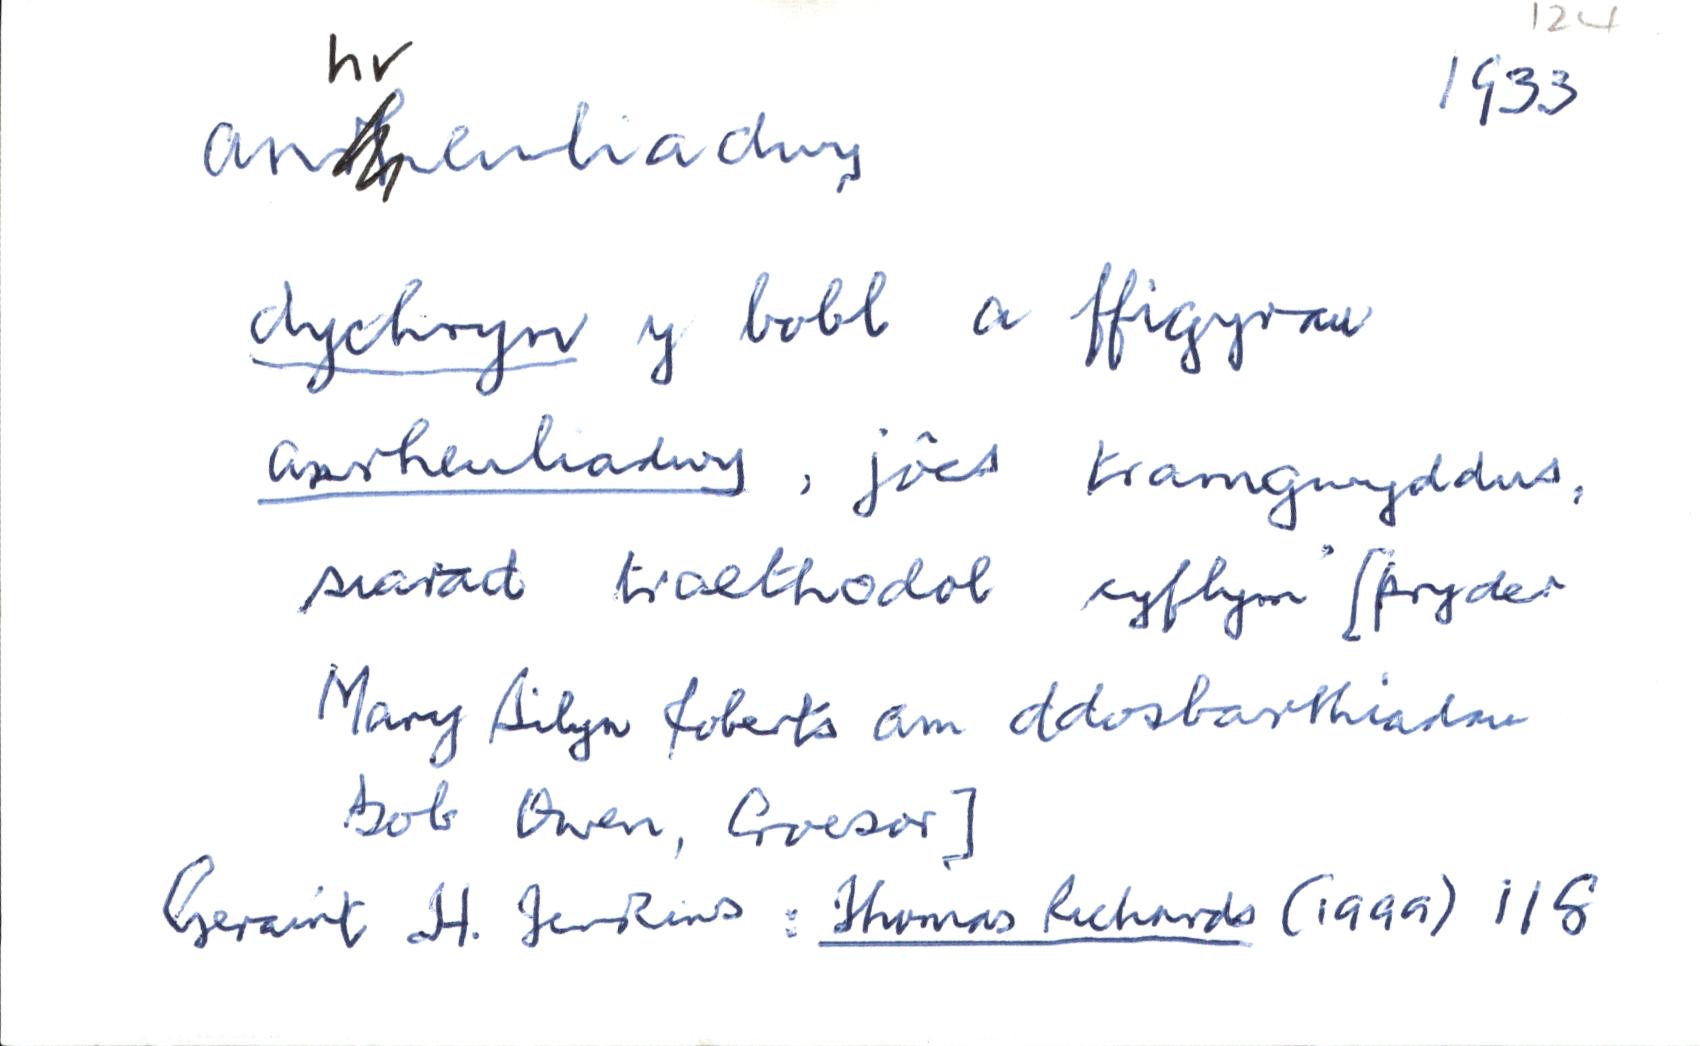 124
1933
hr
anrheuliadwy
dychryn y bobl a ffigyrau
anrheuliadwy, jôcs tramgwyddus,
siarad traethodol cyflym" [pryder
Mary Silyn Roberts am ddosbarthiadau
Bob Owen, Croesor]
Geraint H. Jenkins : Thomas Richards (1999) 118